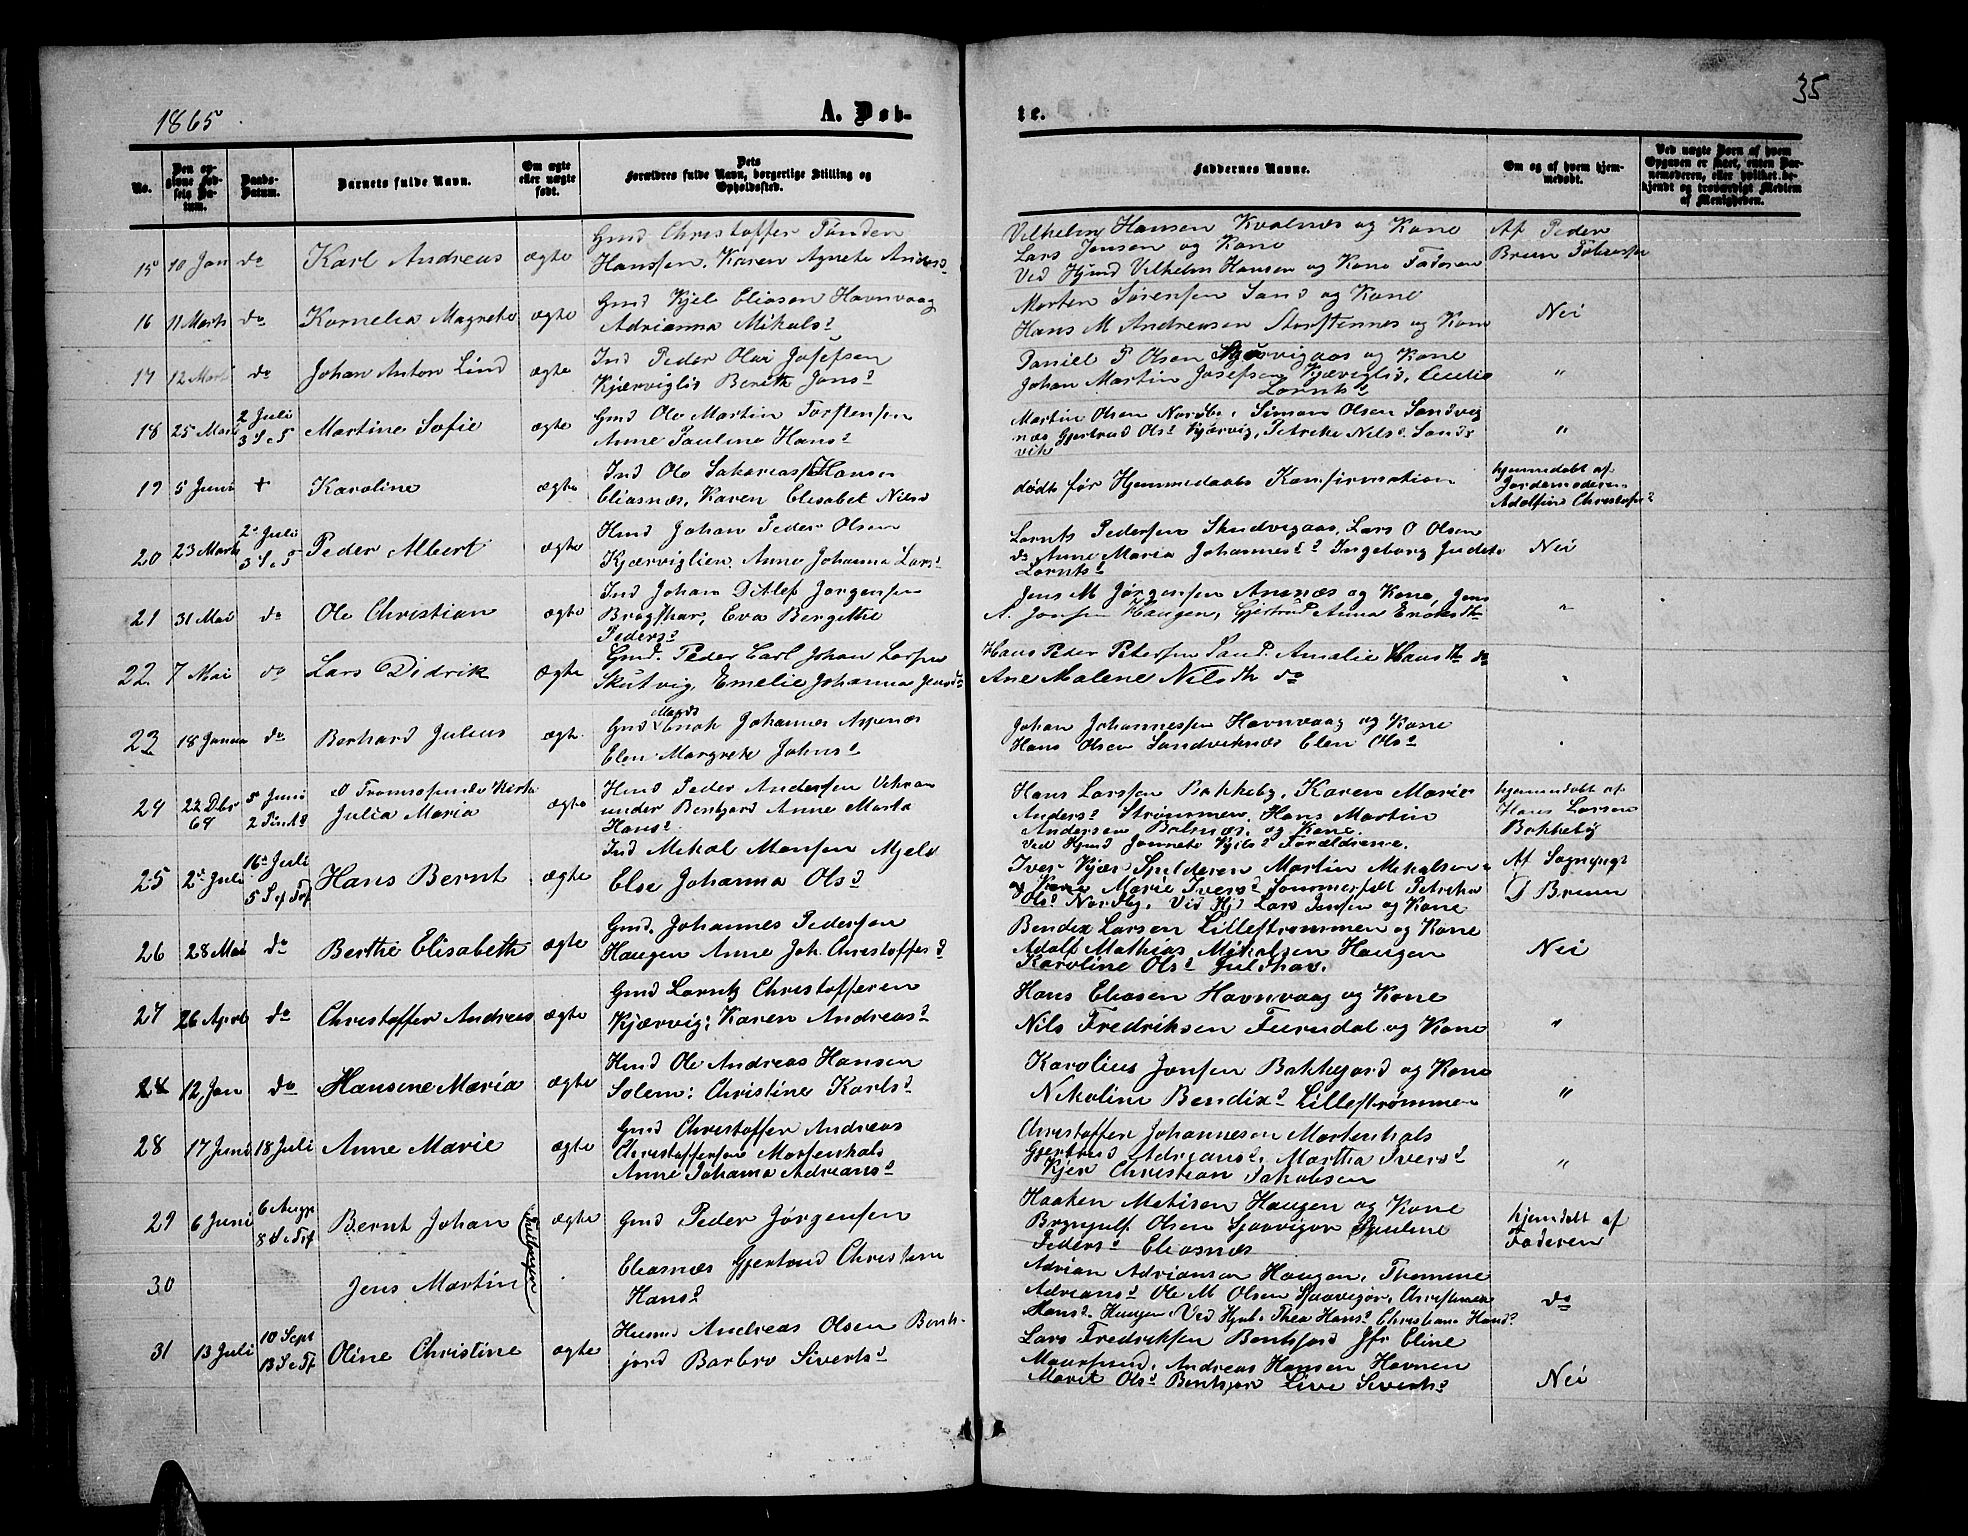 1865
A. Døb-
te.
35
No.
Den op-
givne Fød-
sels Da-
tum.
Daabs-
Datum.
Barnets fulde Navn.
Om ægte
eller uægte
født.
Dets
Forældres fulde Navn, borgerlige Stilling og
Opholdssted.
Faddernes Navne.
Om og af hvem hjem-
medøbt.
Ved uægte Børn af hvem
Opgaven er skeet, enten Bar-
nemoderen, eller hvilket be-
kjendt og troværdigt Medlem
af Menigheden.
15 10 Jan do Karl Andreas ægte
Gmd Christoffer Tønder
Hanssen, Karen Agnete
Vilhelm Hansen Kvalnæs og Kone
Lars Jensen og Kone
Ved Hjmd Vilhelm Hansen og Kone Faderen
Af Peder
Bruun
16 11 Marts do Kornelia Magrete ægte
Gmd Kjel Eliasen Havnvaag
Adrianna Mikalsd
Morten Sørensen Sand og Kone
Hans M Andreasen Storstennes og Kone
Nei
17 12 Mart do Johan Anton Lind ægte
Ind Peder Olai Josefsen
Kjærviglid Berith Jonsd
Daniel P Olsen og Kone
Johan Martin Josefsen Kjærviglid, Cecilie
Lorntsd
"
18 25 Mars 2 Juli
3 S e T Martine Sofie ægte
Gmd Ole Martin Torstensen
Anne Pauline Hansd
Martin Olsen Nordbø, Simon Olsen Sandvig
næs Gjertrud Olsd Kjærvig, Petrike Nilsd Sands
vik
"
19 5 Juni + Karoline ægte
Ind Ole Sakarias Hansen
Eliasnæs, Karen Elisabet Nilsd
dødt før Hjemmedaabs Konfirmation
hjemmedøbt af
Jordemoderen
Adolfine Christofsd
20 23 Marts 2 Juli
3 S e T Peder Albert ægte
Hmd Johan Peder Olsen
Kjærviglien, Anne Johanna Larsd
Lornts Pedersen Skudvigaas, Lars O Olsen
do Anne Maria Johannesd Ingeborg Judete
Lorntsd
Nei
21 31 Mai do Ole Christian ægte
Ind Johan Ditlef Jørgensen
Eva Bergethe
Pedersd
Jens M Jørgensen og Kone, Jens
A. Jensen Haugen, Gjertrud Anna
"
22 7 Mai do Lars Didrik ægte
Gmd. Peder Carl Johan Larsen
Skutvig, Emelie Johanna Jensd
Hans Peder Petersen Sand. Amalie Hansdt do
Ane Malene Nilsdt do
"
23 18 Januar do Berhard Julius ægte
Gmd Mands Enok Johannes Aspenæs
Elen Margrete Johnsd
Johan Johannessen Havnvaag og Kone
Hans Olsen Sandviknæs Elen Olsd
"
24 22 Dbr
64 5 Juni
2 Pin i Tromsøsundes Kirke
Julia Maria ægte
Hmd Peder Andersen
under Bentjord Anne Marta
Hansd
Hans Larssen Bakkeby, Karen Marie
Andersd Strømmen, Hans Martin
Andersen Balsnæs, og Kone.
Ved Hjmd Jonnete Kjilsd Forældrene.
hjemmdøbt af
Hans Larsen
Bakkeby
25 2 Juli 16 Juli
5 S ef Tref Hans Bernt ægte
Ind Mikal Monsen Mjeld
Else Johanna Olsd
Iver Kjær Spilderen Martin Mikalsen
og Kone Marie Iversd Sommerfelt Petrika
Olsd Nordby, Ved Hjd Lars Jensen og Kone
Af Sognepr
D Bruun
26 28 Mai do Berthe Elisabeth ægte
Gmd. Johannes Pedersen
Haugen Anne Joh. Christoffersd
Bendix Larsen Lillestrømmen og Kone
Adolf Mathias Mikalsen Haugen
Karoline Olsd Gulshav.
Nei
27 26 April do Christoffer Andreas ægte
Gmd Lorntz Christoffersen
Kjærvig; Karen Andreasd
Hans Eliasen Havnvaag og Kone
Nils Fredriksen Furudal og Kone
"
28 12 Jan do Hansene Maria ægte
Hmd Ole Andreas Hansen
Solem: Christine Karlsd
Karolius Jonsen Bakkejord og Kone
Nikoline Bendixd Lillestrømmen
"
28 17 Juni 18 Juli Anne Marie ægte
Gmd Christoffer Andreas
Christoffersen Mortenhals
Anne Johanna Adriansd
Christoffer Johannesen Mortenhals
Gjertrud Adriansd, Martha Iversd
Kjer Christian Jakobsen
"
29 6 Juni 6 Aug
8 S e Tref Bernt Johan ægte
Gmd Peder Jørgensen
Haaken Matisen Haugen og Kone
Brynjulf Olsen Sjaavigor Pauline
Pedersd Eliasnæs
hjemdøbt af
Faderen
30 Jens Martin
Tvillinger
Eliasnæs Gjertrud Christine
Hansd
Adrian Adriansen Haugen, Thomine
Adriansd Ole M Olsen Sjaavigor, Christine
Hansd Haugen, Ved Hjmd. Thea Hansd Christiane Hansd
do
31 13 Juli 10 Sept
13 S e Tf Oline Christine ægte
Husmd Andreas Olsen Bent-
jord Barbro Sivertsd
Lars Fredriksen Bentsjord Jfr Eline
Maursund, Andreas Hansen Havnen
Marit Olsd Bentsjor Live Sivertsd
Nei